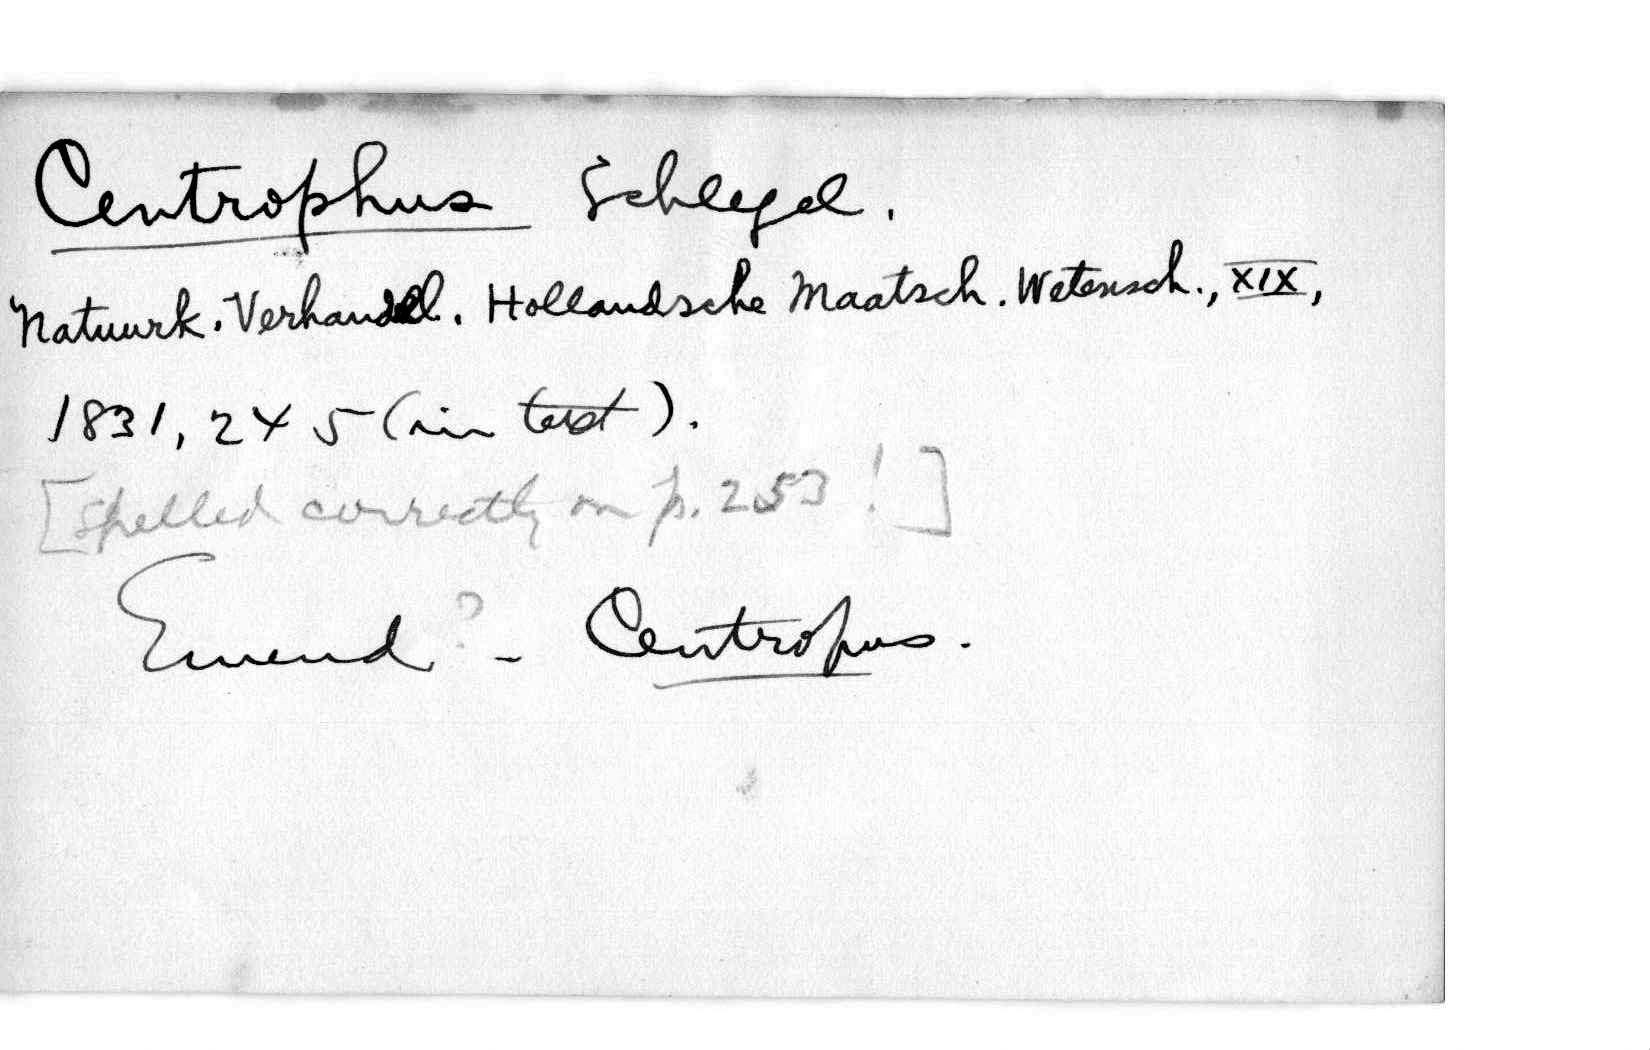 Centrophus Schlegel.
Natuurk. Verhandel. Hollandsche Maatsch. Wetensch., XIX,
1831, 245 (in text).
[spelled correctly on p. 253!]
Emend? - Centropus.